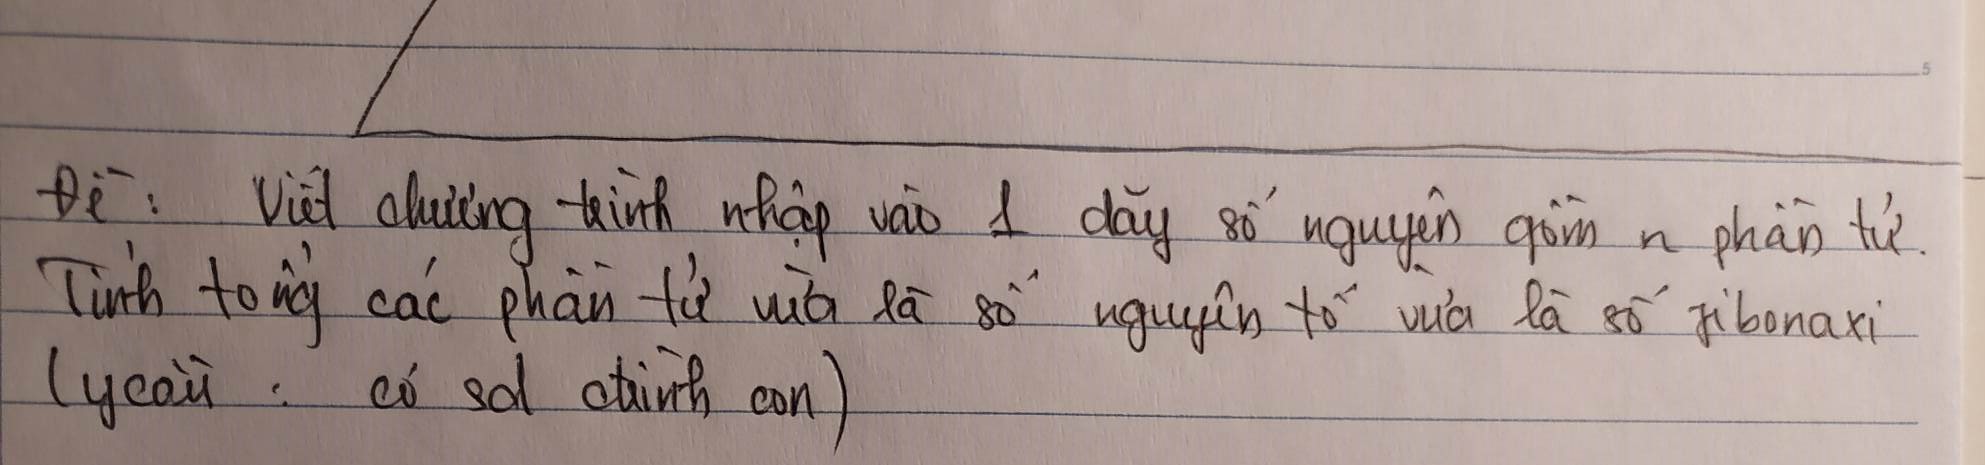 Đề: Viết chương trình nhập vào 1 dãy số nguyên gồm n phần tử.
Tính tổng các phần tử vừa là số nguyên tố vừa là số fibonaxi
(ycầu: có sd ctrình con)